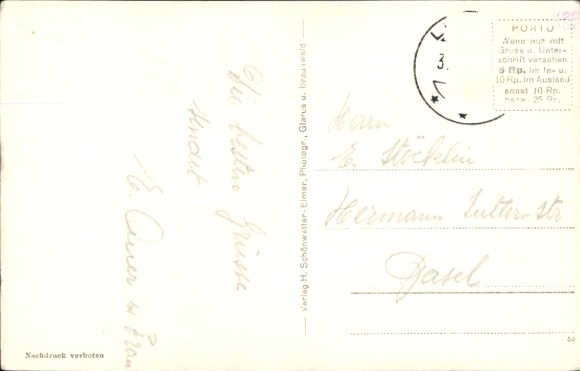 Die besten Grüsse
sendet
E. Auer u Frau
Verlag H. Schönwetter-Elmer, Photogr., Glarus u. Braunwald
PORTO
Wenn nur mit
Gruss u. Unter-
schrift versehen
5 Rp. im In- u.
10 Rp. im Ausland
sonst 10 Rp.
bezw. 25 Rp.
3.
Herrn
E. Stöcklin
Hermann Suter-Str
Basel
50
Nachdruck verboten